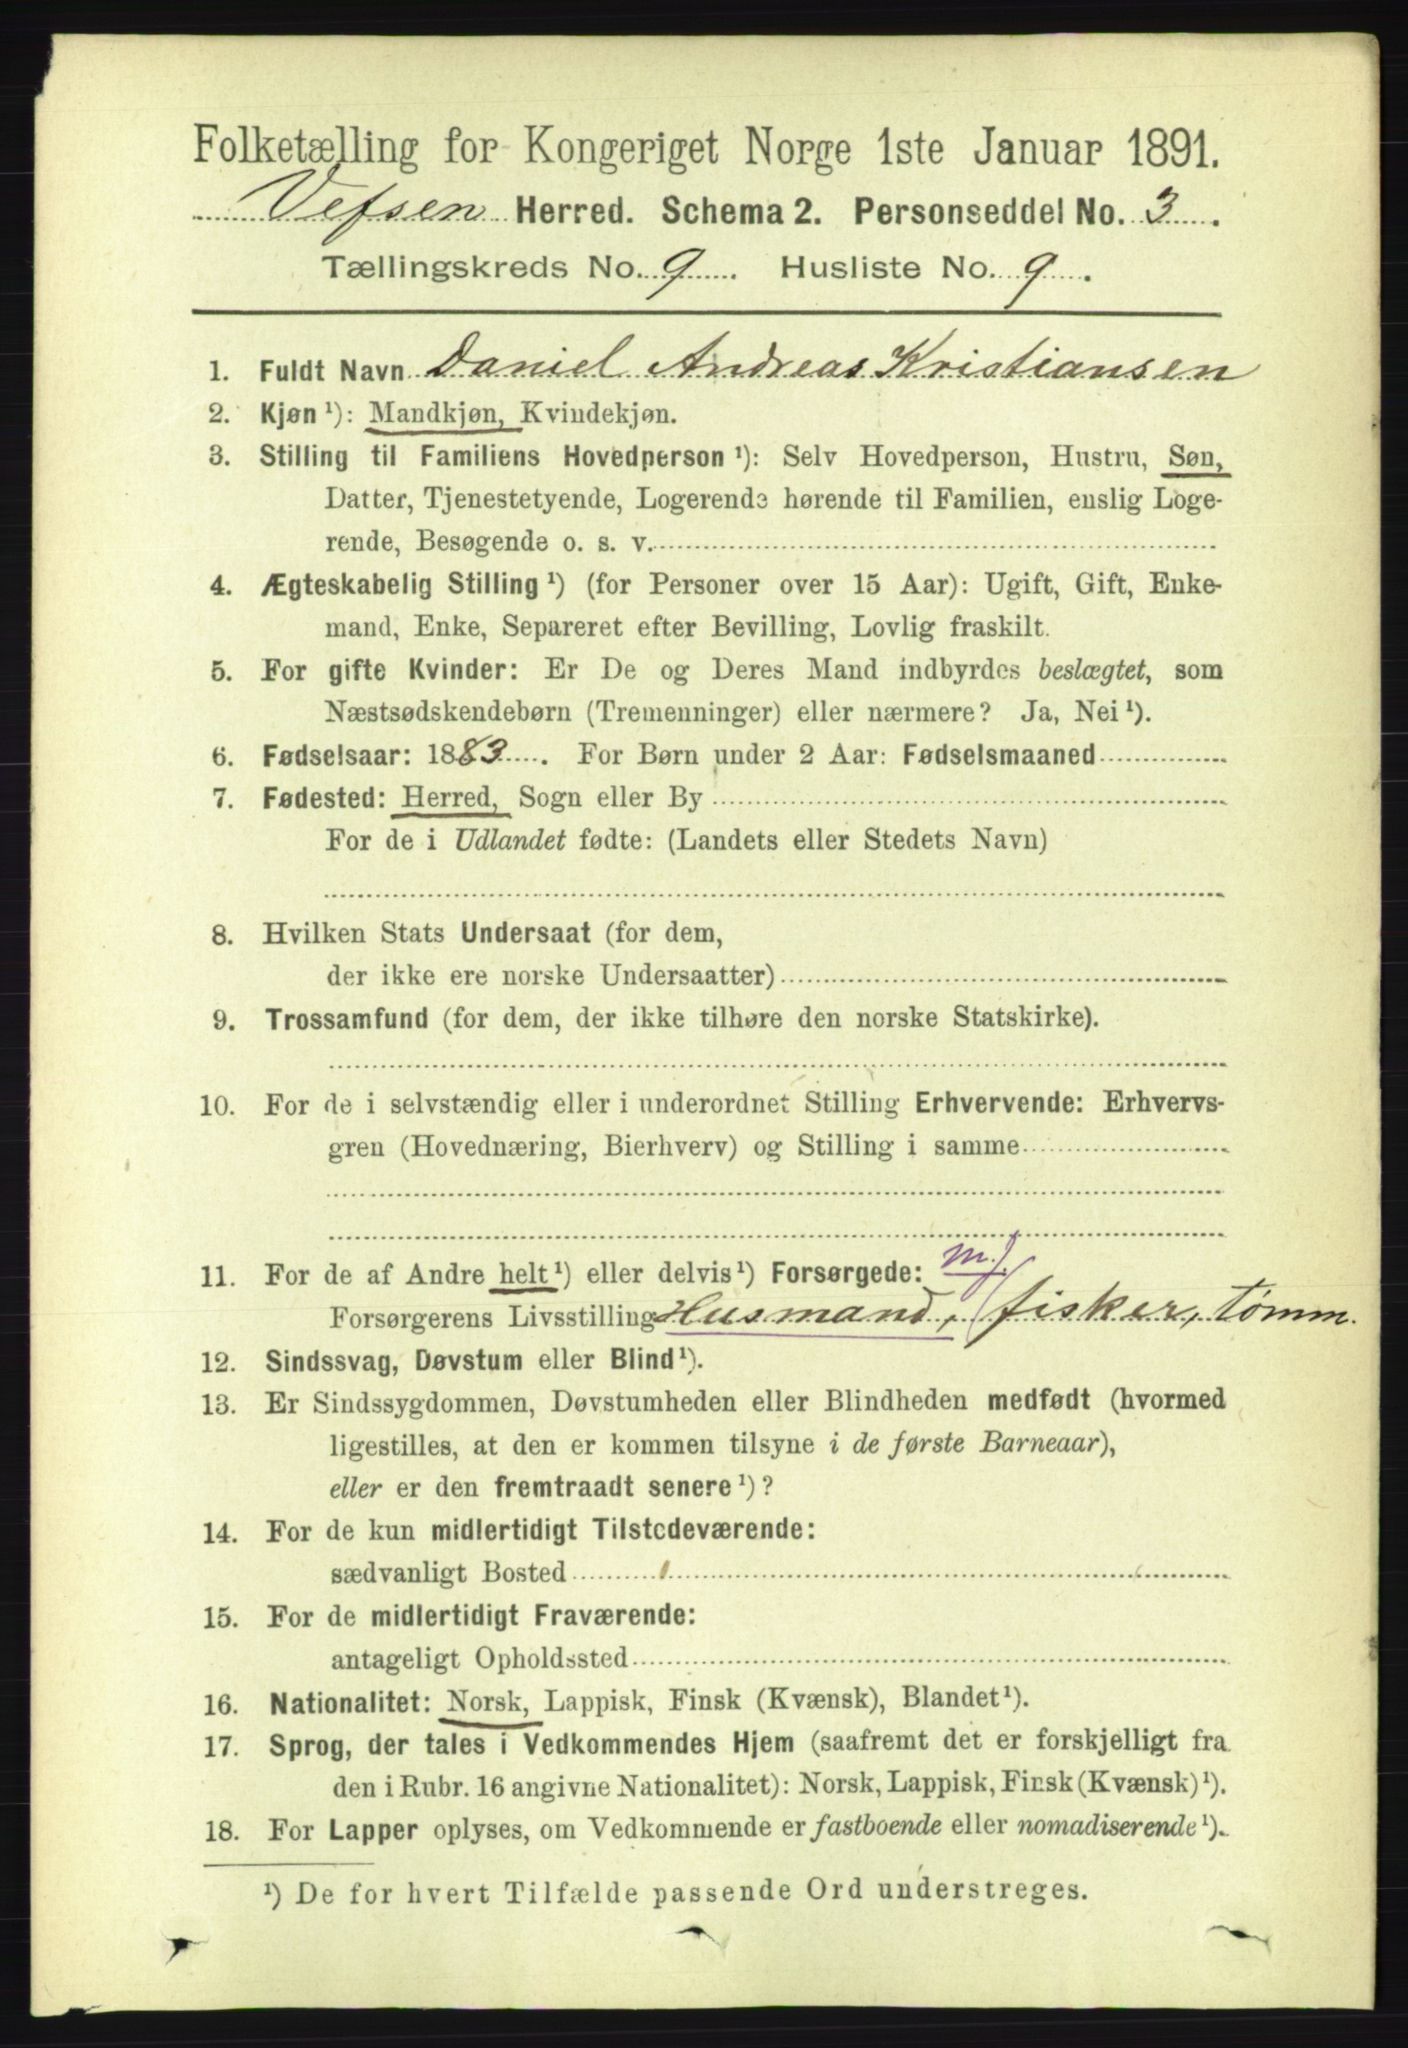 Folketælling for Kongeriget Norge 1ste Januar 1891.
Vefsen Herred. Schema 2. Personseddel No. 3.
Tællingskreds No. 9. Husliste No. 9.
1. Fuldt Navn Daniel Andreas Kristiansen
2. Kjøn ¹): Mandkjøn, Kvindekjøn.
3. Stilling til Familiens Hovedperson ¹): Selv Hovedperson, Hustru, Søn,
Datter, Tjenestetyende, Logerende hørende til Familien, enslig Loge-
rende, Besøgende o. s. v.
4. Ægteskabelig Stilling ¹) (for Personer over 15 Aar): Ugift, Gift, Enke-
mand, Enke, Separeret efter Bevilling, Lovlig fraskilt.
5. For gifte Kvinder: Er De og Deres Mand indbyrdes beslægtet, som
Næstsødskendebørn (Tremenninger) eller nærmere? Ja, Nei ¹).
6. Fødselsaar: 1883. For Børn under 2 Aar: Fødselsmaaned
7. Fødested: Herred, Sogn eller By
For de i Udlandet fødte: (Landets eller Stedets Navn)
8. Hvilken Stats Undersaat (for dem,
der ikke ere norske Undersaatter)
9. Trossamfund (for dem, der ikke tilhøre den norske Statskirke).
10. For de i selvstændig eller i underordnet Stilling Erhvervende: Erhvervs-
gren (Hovednæring, Bierhverv) og Stilling i samme
11. For de af Andre helt ¹) eller delvis ¹) Forsørgede: m.j.
Forsørgerens Livsstilling Husmand, fisker, tømm.
12. Sindssvag, Døvstum eller Blind ¹).
13. Er Sindssygdommen, Døvstumheden eller Blindheden medfødt (hvormed
ligestilles, at den er kommen tilsyne i de første Barneaar),
eller er den fremtraadt senere ¹)?
14. For de kun midlertidigt Tilstedeværende:
sædvanligt Bosted
15. For de midlertidigt Fraværende:
antageligt Opholdssted
16. Nationalitet: Norsk, Lappisk, Finsk (Kvænsk), Blandet ¹).
17. Sprog, der tales i Vedkommendes Hjem (saafremt det er forskjelligt fra
den i Rubr. 16 angivne Nationalitet): Norsk, Lappisk, Finsk (Kvænsk) ¹).
18. For Lapper oplyses, om Vedkommende er fastboende eller nomadiserende ¹).
¹) De for hvert Tilfælde passende Ord understreges.